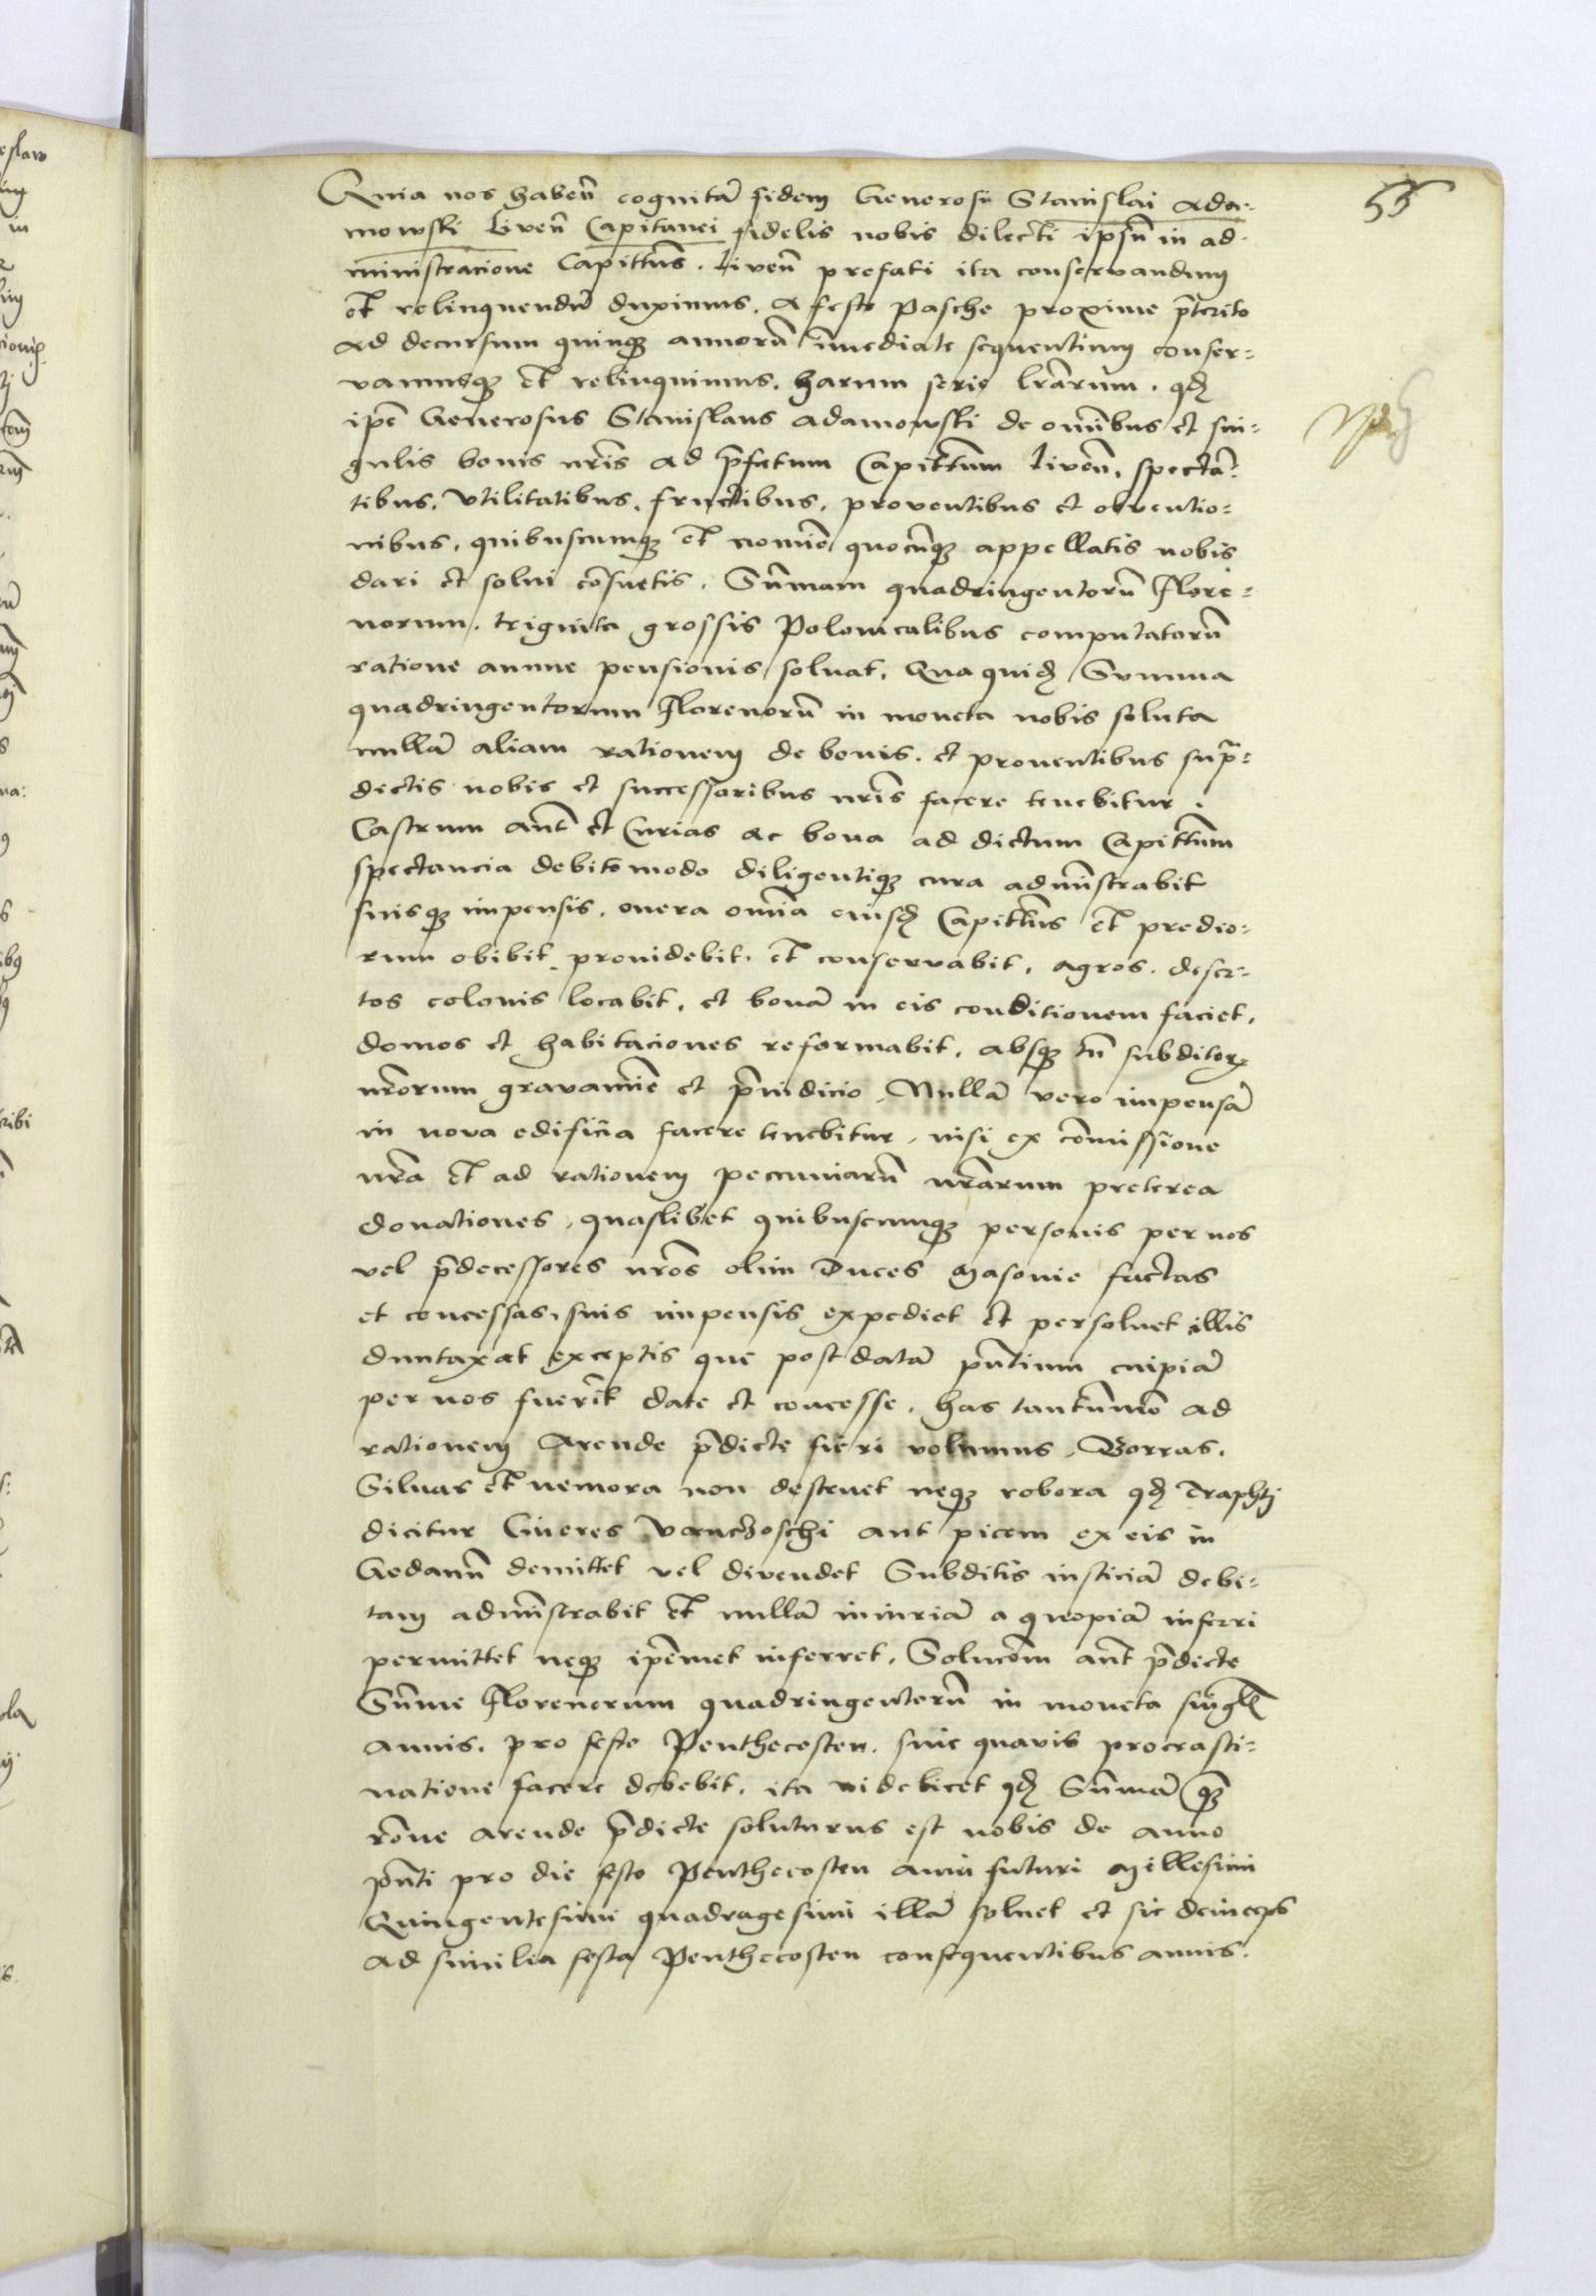 55
Quia nos haben̄ cognitā fidem Generosi Stanislai Ada-
mowski Liven̄ Capitanei fidelis nobis dilecti ipsū in ad-
ministracione Capittus̄. Liven̄ prefati ita conservandum
et relinquendū duximus. A festo Pasche proxime p̄terito
ad decursum quinq3 annorū īmediate sequentium conser-
vamusq3 et relinquimus. harum serie lrārum. qđ
ipē Generosus Stanislaus Adamowski de omībus et sin-
gulis bonis nrīs ad p̄fatum Capittūm Liven̄. spectā-
tibus. Utilitatibus. fructibus. proventibus et obventio-
nibus. quibuscunq3 et nomīe quocūq3 appellatis nobis
dari et solui cōsuetis. Sūmam quadringentorū Flore-
norum. triginta grossis Polonicalibus computatorū
ratione annue pensionis soluat. Qua quiđ Summa
quadringentorum Florenorū in moneta nobis soluta
nullā aliam rationem de bonis. et proventibus sup̄-
dictis nobis et successoribus nrīs facere tenebitur.
Castrum aūt et Curias ac bona ad dictum Capittūm
spectancia debitomodo diligentiq3 cura admīstrabit
suisq3 impensis. onera omīa eiusđ Capittūs et predio-
rum obibit providebit. et conservabit. agros. deser-
tos colonis locabit. et bonā in eis conditionem faciet.
domos et habitaciones reformabit. absq3 tn̄ subditoꝝ
nrōrum gravamīe et p̄iudicio. Nullā vero impensā
in nova edificia facere tenebitur. nisi ex cōmissione
nrā et ad rationem pecuniarū nrārum preterea
donationes. quaslibet quibuscumq3 personis per nos
vel p̄decessores nrōs olim Duces Masovie factas
et concessas, suis impensis expediet et persoluet illis
duntaxat exceptis que post datā pn̄tium cuipiā
per nos fuerīt date et concesse. has tantūmō ad
rationem Arende p̄dicte fieri volumus. Borras.
Siluas et nemora non destruet neq3 robora qđ Traphtj
dicitur Cineres Vanczoschi aut picem ex eis in
Gedanū demittet vel divendet Subditis iusticiā debi-
tam admīstrabit et nullā iniuriā a quopiā inferri
permittet neq3 ipēmet inferret. Solucōem aūt p̄dicte
Sūme Florenorum quadringentorū in moneta singl̄
annis. pro festo Penthecosten. sine quavis procrasti-
natione facere debebit. ita videlicet qđ Sūmā quā
rōne arende p̄dicte soluturus est nobis de anno
pn̄ti pro die festo Penthecosten anni futuri Millesimi
Quingentesimi quadragesimi illā soluet et sic deinceps
ad similea festa Penthecosten consequentibus annis.